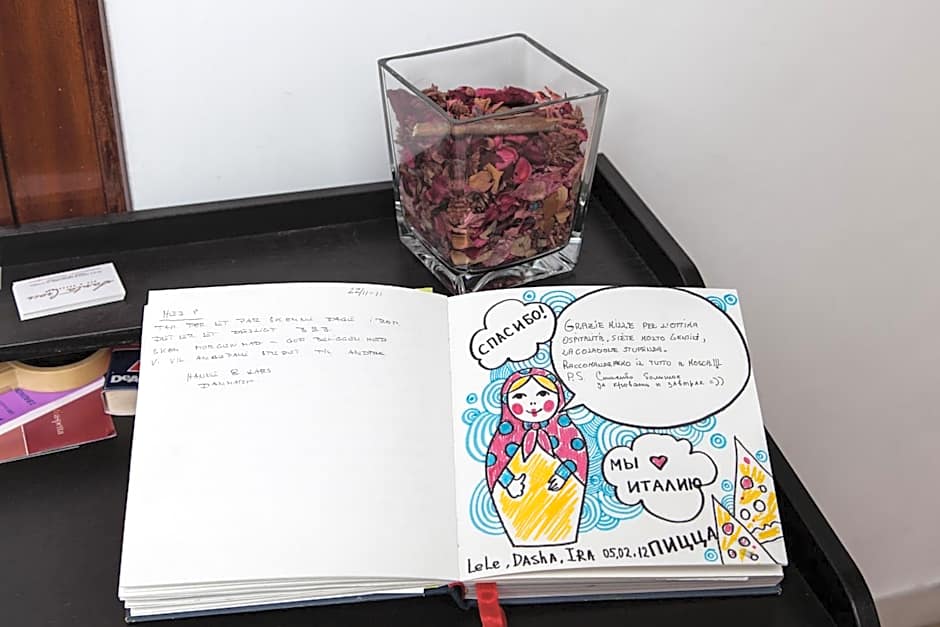 22/11-11
HEJ !
TAK FOR ET PAR SKØNNE DAGE I ROM
DET ER ET DEJLIGT B&B.
SKØN MORGENMAD – GOD BELIGGENHED
VI VIL ANBEFALE STEDET TIL ANDRE
HANNE & LARS
DANMARK
СПАСИБО!
GRAZIE MILLE PER L'OTTIMA
OSPITALITÀ, SIETE MOLTO GENTILI,
LA COLAZIONE STUPENDA.
RACCOMANDEREMO IL TUTTO A MOSCA!!!
P.S. Спасибо большое
за кровати и завтрак =))
МЫ ♥
ИТАЛИЮ
ПИЦЦА
LeLe, DASHA, IRA 05.02.12